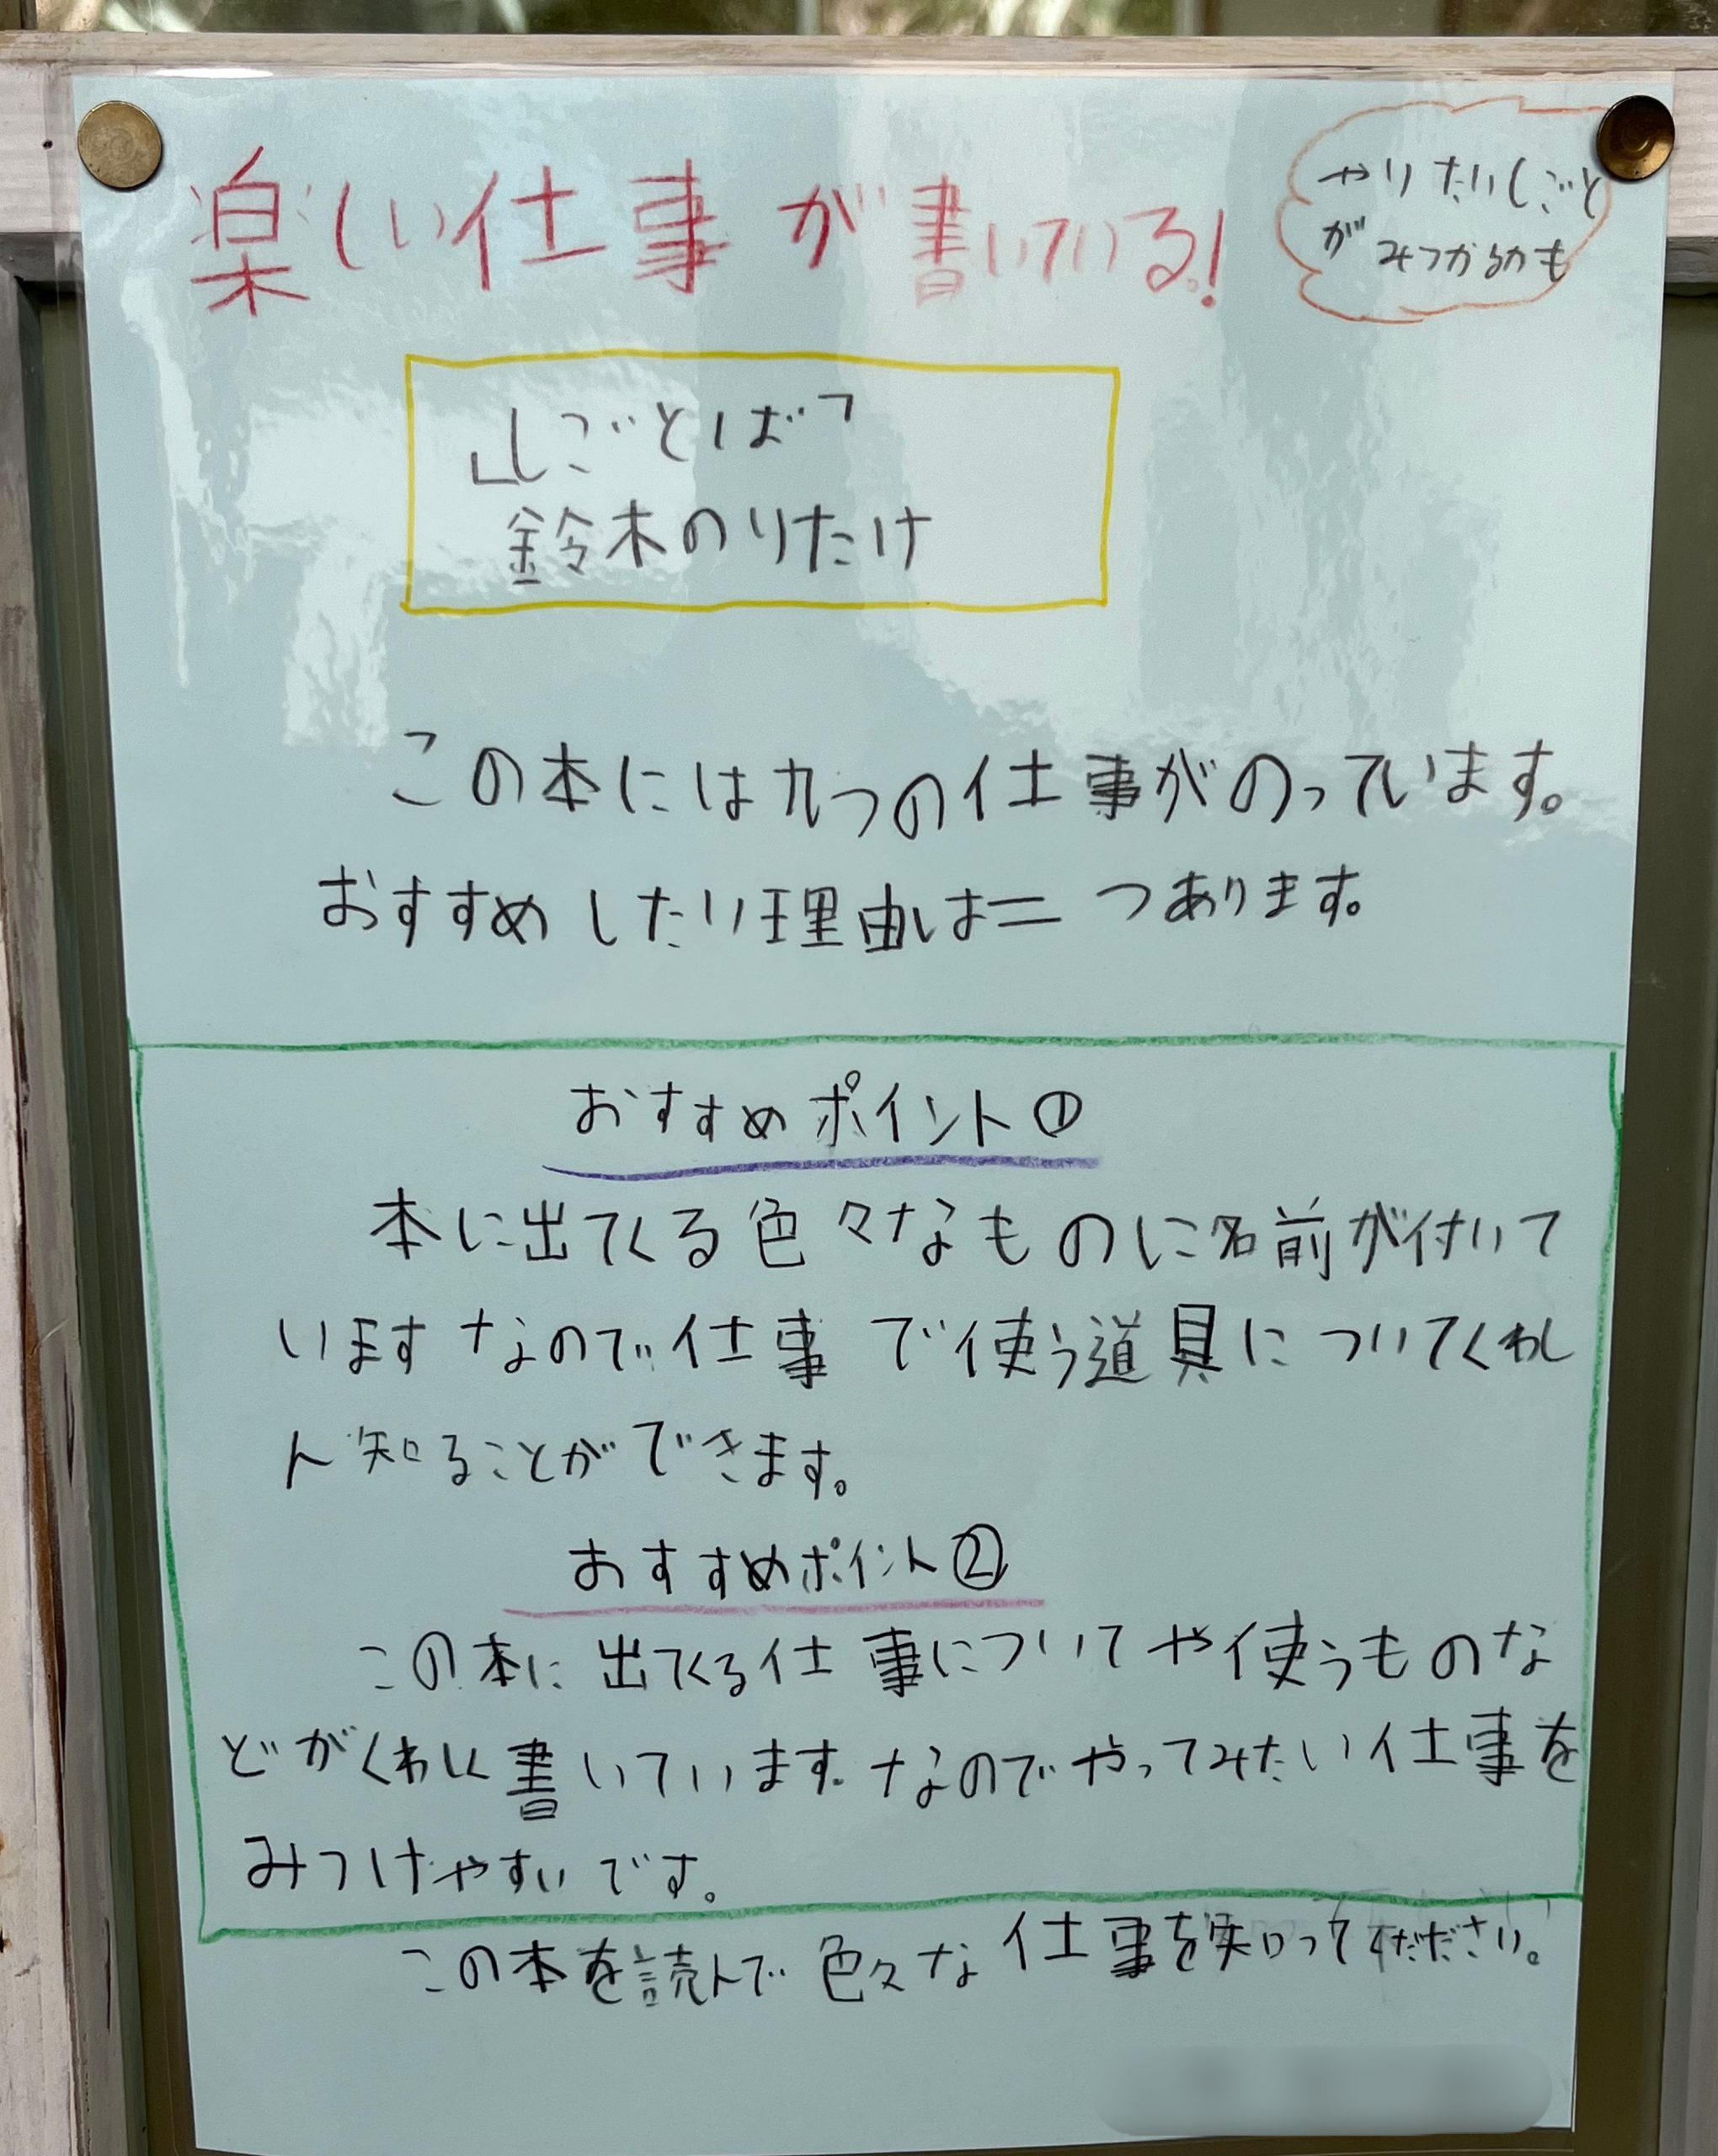 楽しい仕事が書いている!
やりたいしごと
がみつかるかも
」しごとば「
鈴木のりたけ
この本には九つの仕事がのっています。
おすすめしたい理由は二つあります。
おすすめポイント①
本に出てくる色々なものに名前が付いて
いますなので仕事で使う道具についてくわし
く知ることができます。
おすすめポイント②
この本に出てくる仕事についてや使うものな
どがくわしく書いています。なのでやってみたい仕事を
みつけやすいです。
この本を読んで色々な仕事を知ってください。